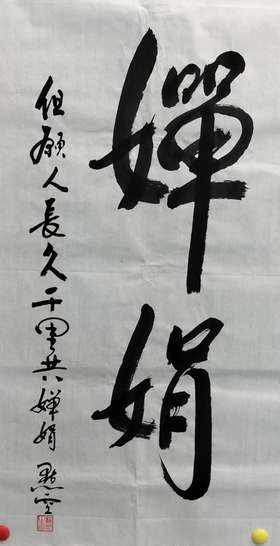 嬋娟
但願人長久千里共嬋娟